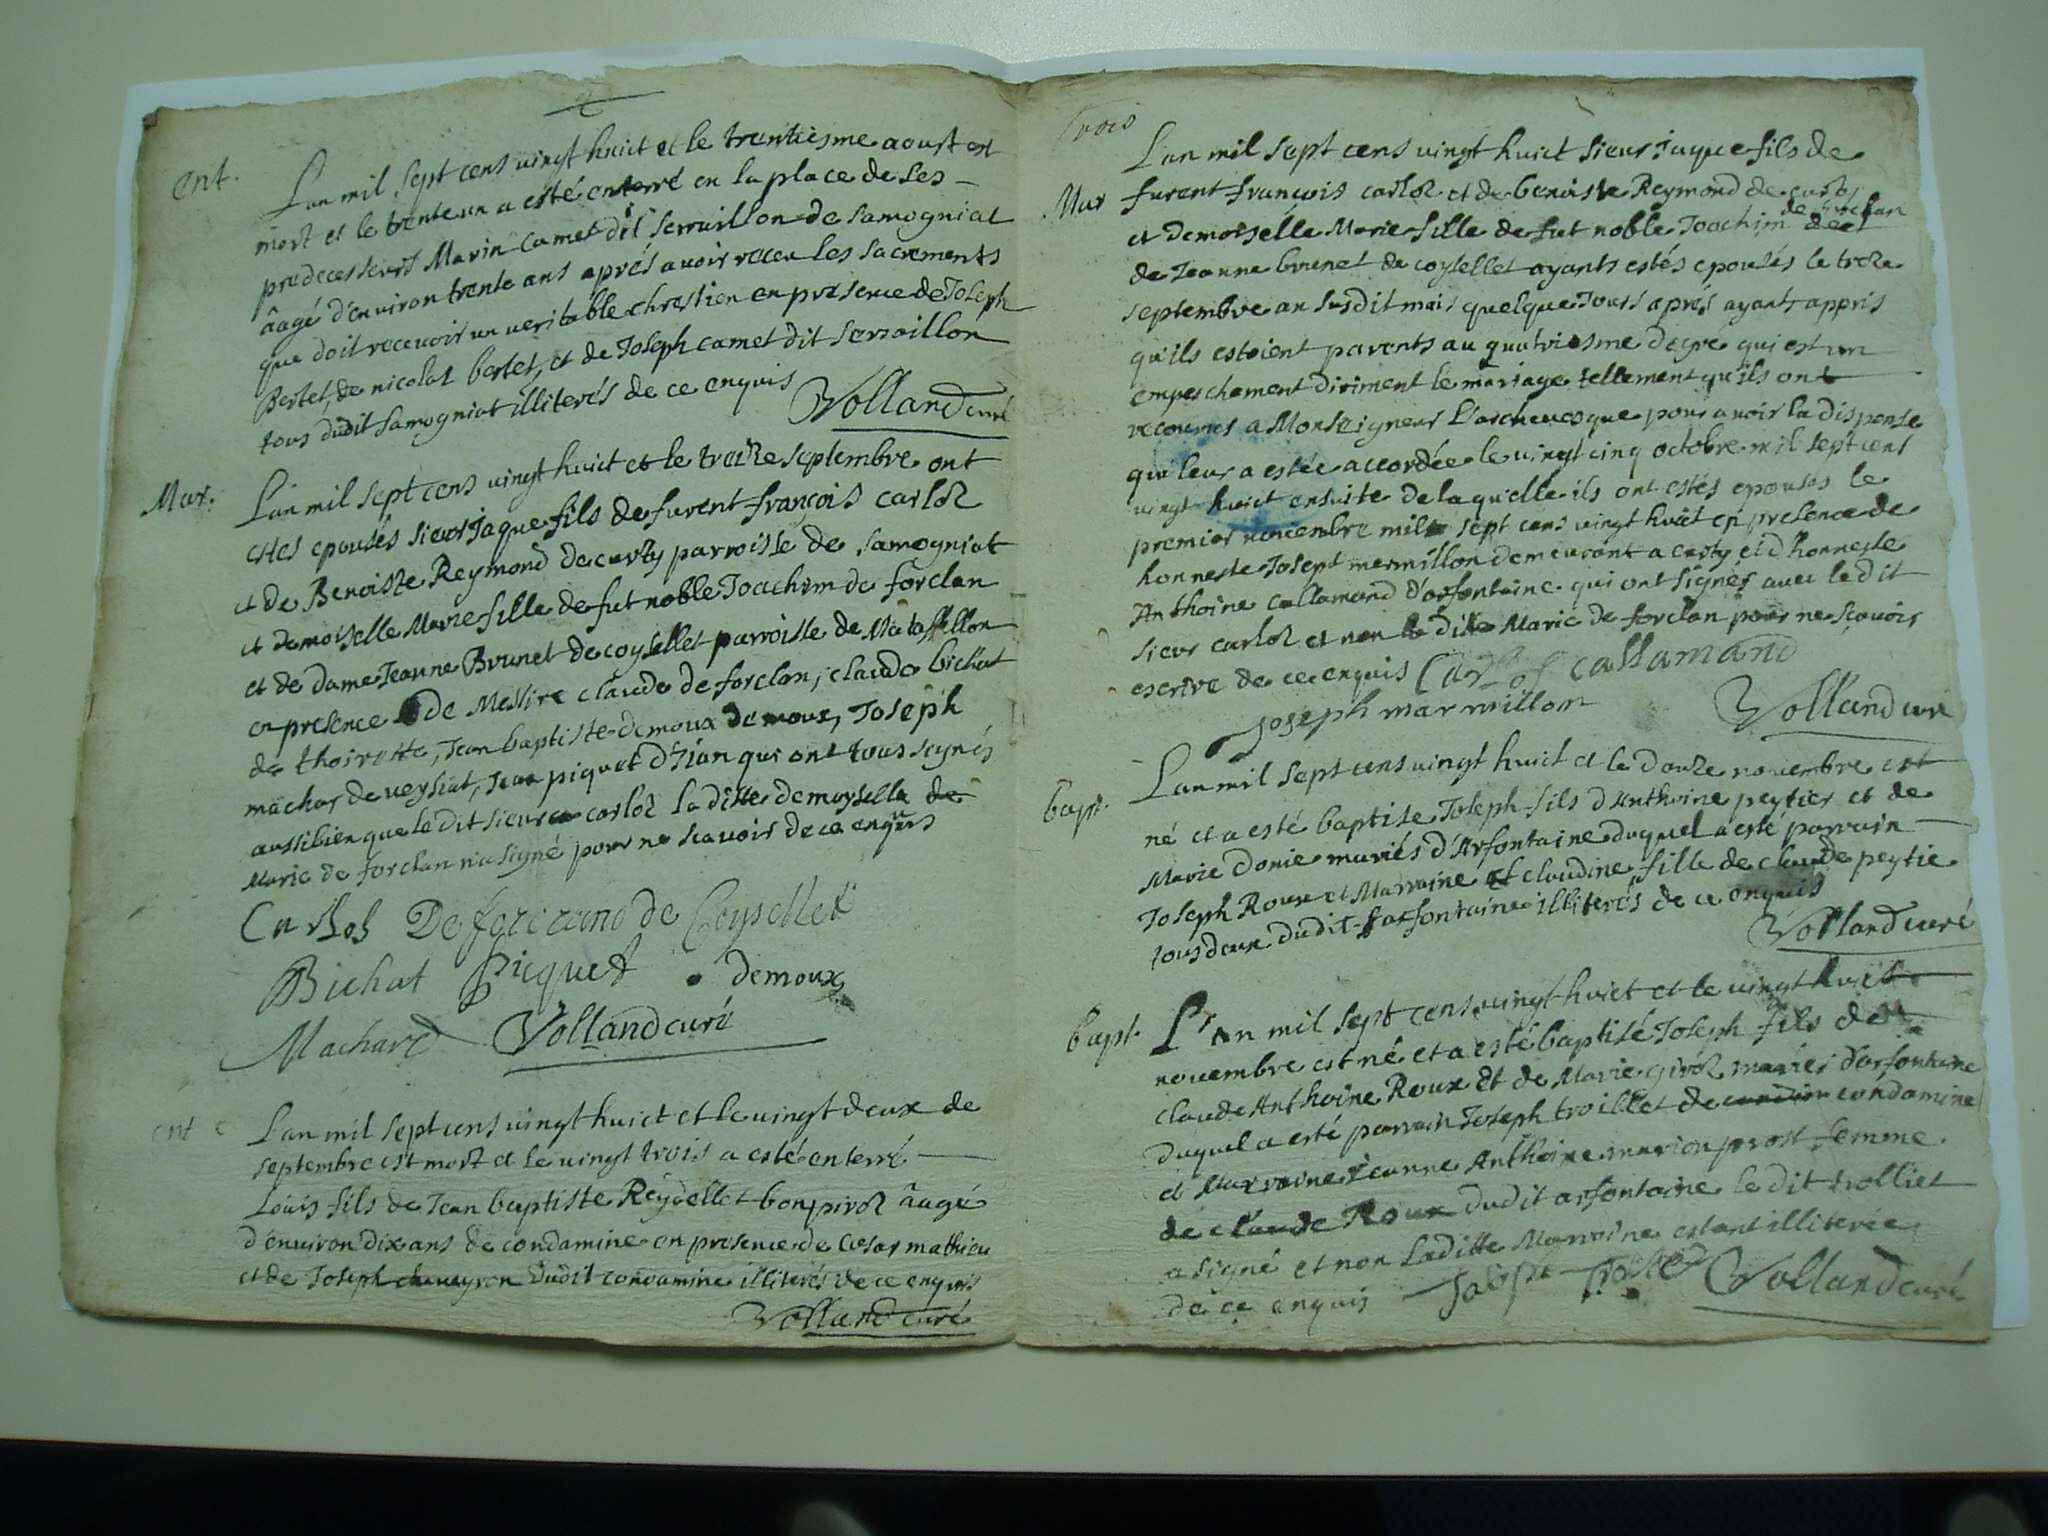 2
ent.
L'an mil sept cens vingt huict et le trentiesme aoust est
mort et le trente un a esté enterré en la place de ses
predecesseurs Marin Camet dit serraillon de samogniat
âagé d'environ trente ans aprés avoir receu les sacrements
que doit recevoir un veritable chrestien en presence de Joseph
Bertet, de nicolas bertet, et de Joseph camet dit serraillon
tous dudit samogniat illiterés de ce enquis
Volland curé
Mar.
L'an mil sept cens vingt huict et le treize septembre ont
estes epousés sieur Jaque fils de furent françois carloz
et de Benoiste Reymond de parroisse de samogniat
et demoiselle Marie fille de fut noble Joachim de forclan
et de dame Jeanne Brunet de coysellet parroisse de Mataffellon
en presence de Messire claude de forclan, claude bichat
de thoirette, Jean baptiste demoux demoux, Joseph
machar de veysiat, Jean piquet d'Jian qui ont tous signés
aussi bien que le dit sieur carloz la ditte demoyselle de
Marie de forclan n'a signé pour ne scavoir de ce enquis
Carlos De forcrand de Coysellet
Bichat Picquet demoux
Machard Volland curé
ent
L'an mil sept cens vingt huict et le vingt deux de
septembre est mort et le vingt trois a esté enterré
Louis fils de Jean baptiste Reydellet bonpiroz âagé
d'environ dix ans de condamine en presence de Cesar mathieu
et de Joseph chaveyron dudit condamine illiterés de ce enquis
Volland curé
Trois
L'an mil sept cens vingt huict sieur Jaque fils de
Mar
furent françois carloz et de benoiste Reymond de
de forclan
et demoiselle Marie fille de fut noble Joachim
de Jeanne brunet de coysellet ayants estés epousés le treze
septembre an susdit mais quelque Jours aprés ayant appris
qu'ils estoient parents au quatriesme degré qui est un
empeschement diriment le mariage tellement qu'ils ont
recourres a Monseigneur L'archevesque pour avoir la dispense
qui leur a estée accordée le vingt cinq octobre mil sept cens
vingt huict ensuite de laquelle ils ont estés epousés le
premier novembre mil sept cens vingt huict en presence de
honneste Joseph mermillon demeurant a et d'honneste
Anthoine callamand d'arfontaine qui ont signés avec le dit
sieur carloz et non la ditte Marie de forclan pour ne scavoir
escrire de ce enquis Carlos callamand
joseph marmillon
Volland curé
bapt.
L'an mil sept cens vingt huict et le douze novembre est
né et a esté baptise Joseph fils d'Anthoine peytier et de
Marie donie mariés d'Arfontaine duquel a esté parrain
Joseph Roux et Marraine et claudine fille de claude peytie
tous deux dudit arfontaine illiterés de ce enquis
Volland curé
bapt.
L'an mil sept cens vingt huict et le vingt huict
novembre est né et a esté baptisé Joseph fils de
claude Anthoine Roux et de Marie giroz mariés d'arfontaine
duquel a esté parrain Joseph troillet de condamine
et Marraine Jeanne Anthoine marion prost femme
de claude Roux dudit arfontaine le dit trolliet
a signé et non Laditte Marraine estant illiterée
de ce enquis
Volland curé